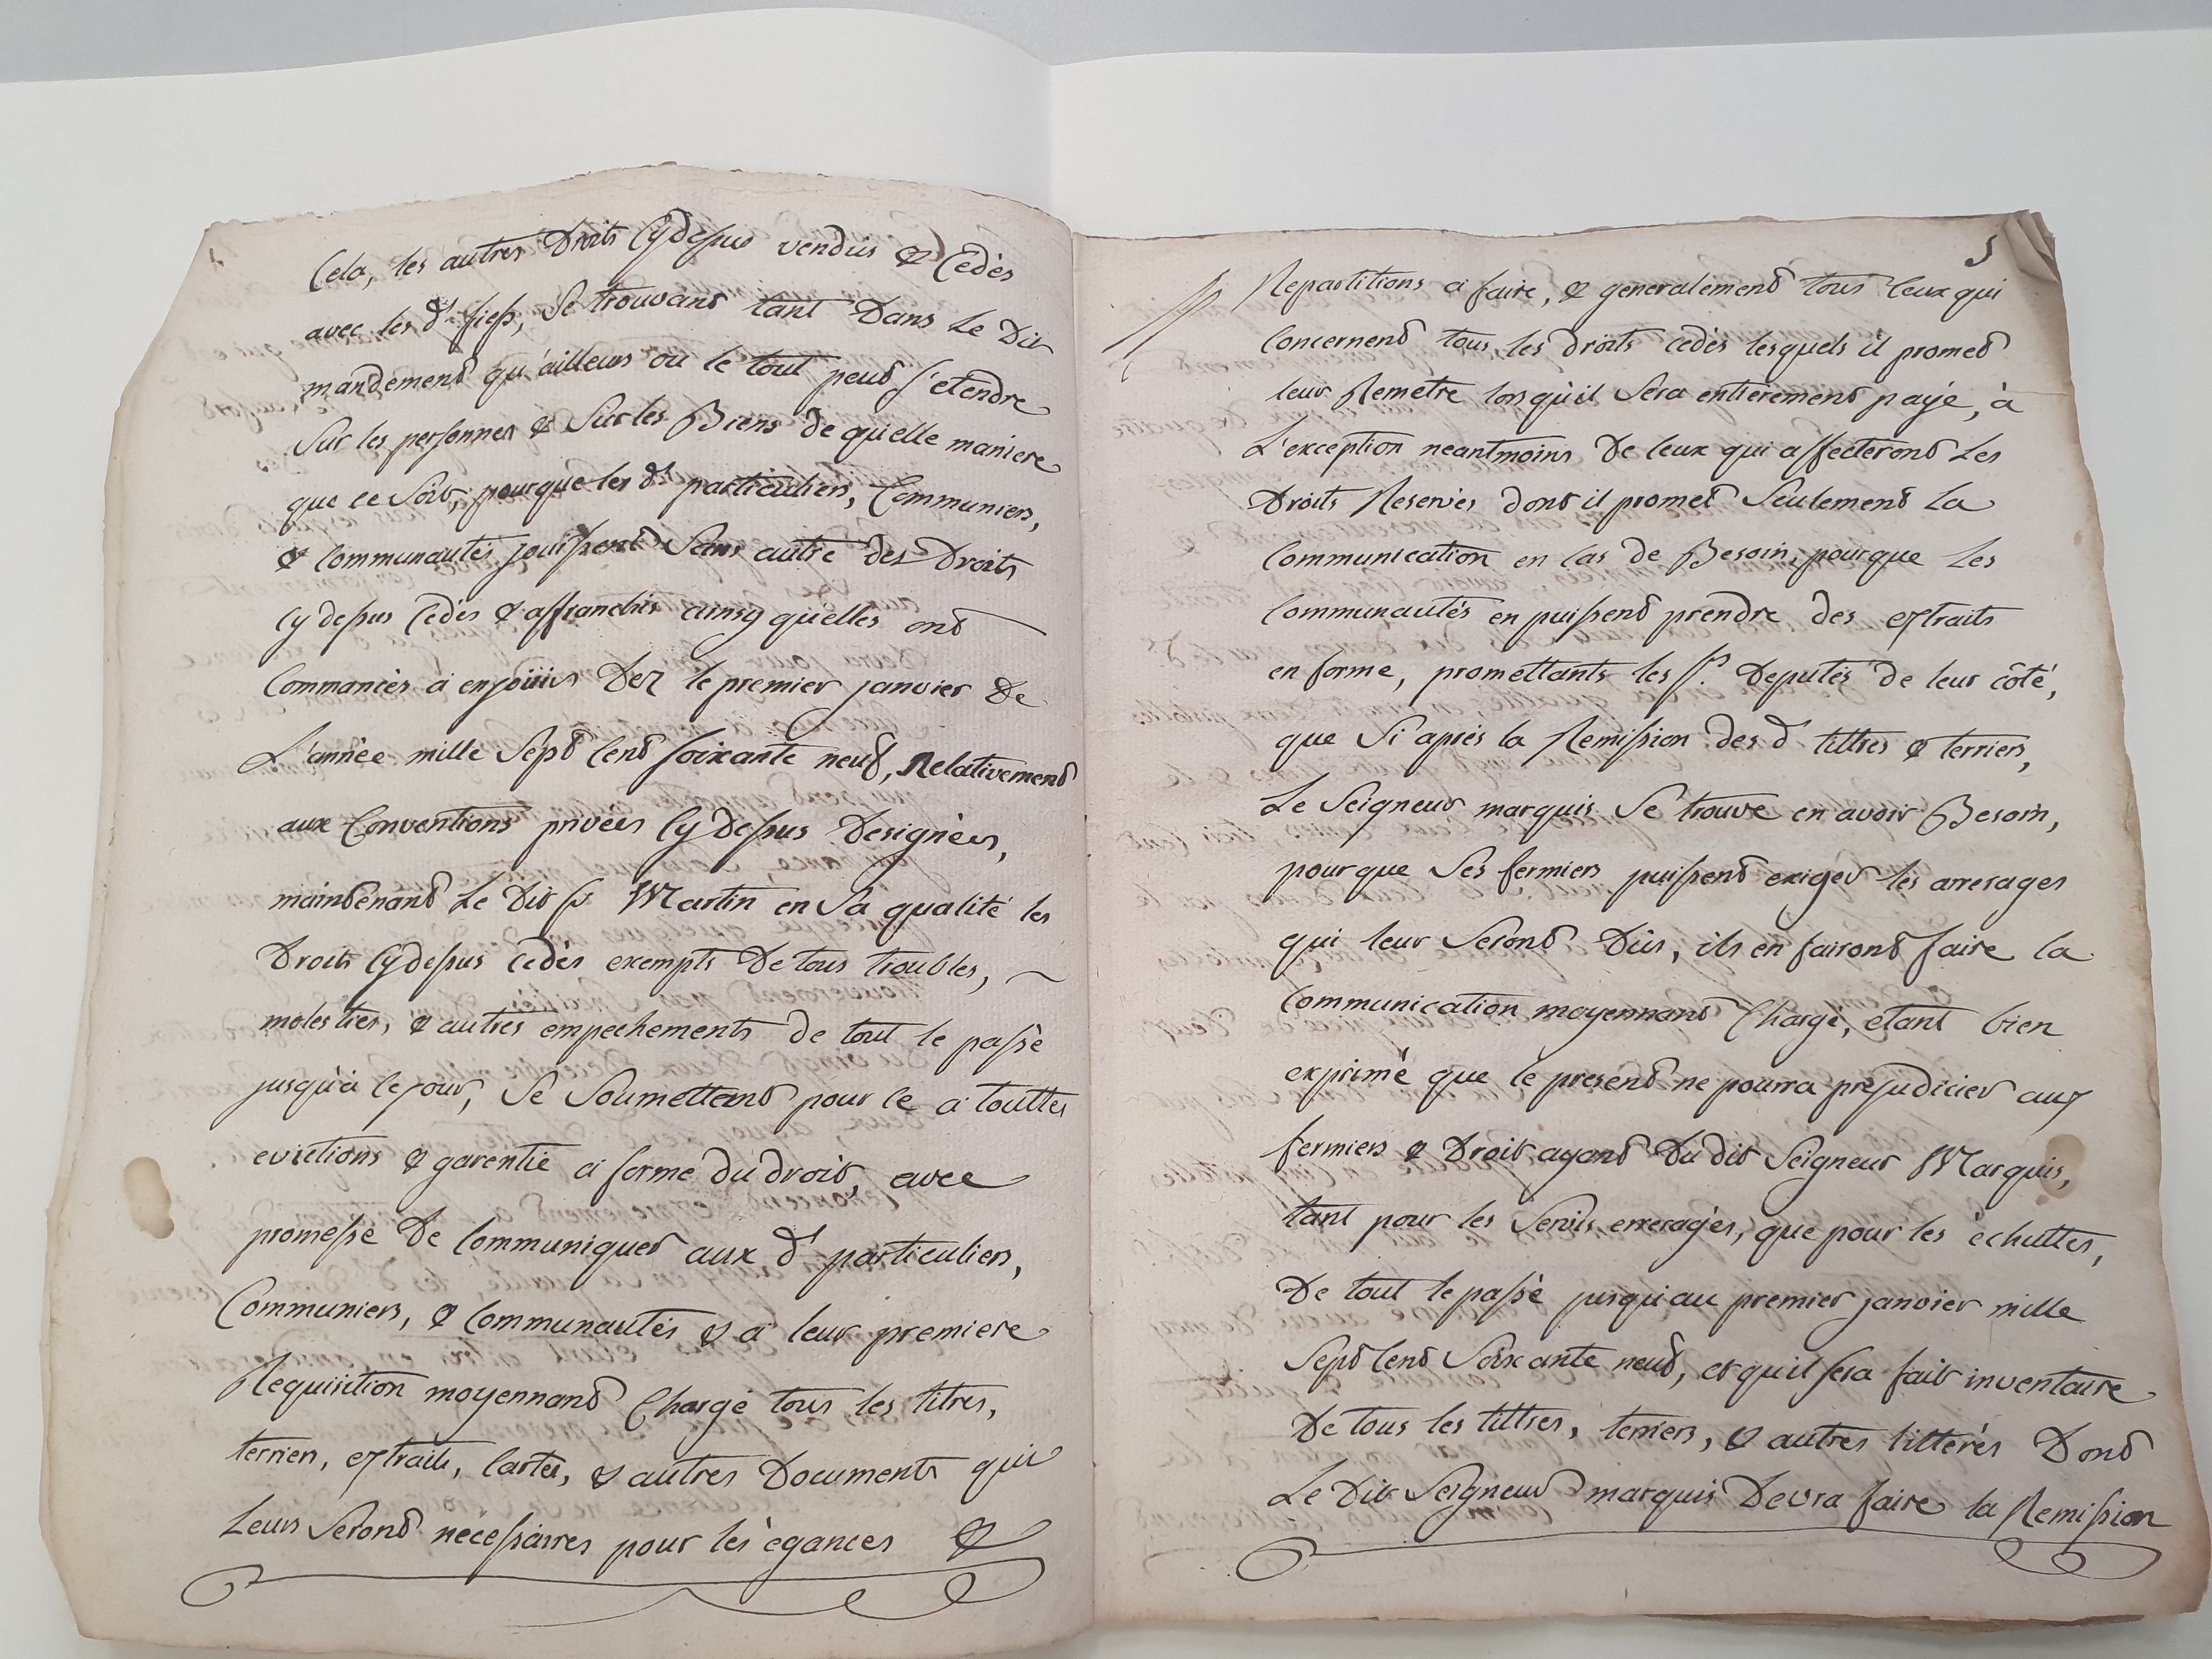 Cela, les autres Droits Cy dessus vendus & Cedès
avec les dts fiefs, Se trouvant tant Dans Le Dit
mandement qu'ailleurs ou le tout peut s'etendre
Sur les personnes & Sur les Biens de quelle maniere
que ce Soit, pourque les dts particuliers, Communiers,
& Communautés jouissent Sans autre des Droits
Cy dessus Cedès & affranchis ainsy qu'elles ont
Commancès a en jouir Dez le premier janvier De
L'annèe mille Sept Cent soixante neuf, Relativement
aux Conventions privèes Cy Dessus Designèes,
maintenant Le Dit Sr Martin en Sa qualité les
Droits Cy dessus cedès exempts De tous troubles,
molesties, & autres empechements de tout le passè
jusqu'à ce jour, Se Soumettant pour ce à touttes
evictions & garentie a forme du droit, avec
promesse De Communiquer aux dts particuliers,
Communiers, & Communautés & a leur premiere
Requisition moyennant Charge tous les titres,
terriers, extraits, Cartes, & autres Documents qui
Leurs Seront nècessaires pour les ègances &
5
Repartitions a faire, & generalèment tous Ceux qui
Concernent tous les droits cedès lesquels il promet
leur Remetre lorsqu'il Sera entièrement payé, à
L'exception neantmoins De Ceux qui affecteront Les
Droits Reservès dont il promet Seulement La
Communication en Cas de Besoin, pourque Les
Communautés en puissent prendre des extraits
en forme, promettants les Srs Deputés de leur côté,
que Si après la Remission des dts tittres & terriers,
Le Seigneur marquis Se trouve en avoir Besoin,
pour que Ses fermiers puissent exiger les arrerages
qui leur Seront Dûs, ils en fairont faire la
Communication moyennant Charge, etant bien
exprimé que le present ne pourra prejudicier aux
fermiers & Droit ayant Du dit Seigneur Marquis,
tant pour les Servis arreragès, que pour les èchuttes,
De tout le passé jusqu'au premier janvier mille
Sept Cent Soixante neuf, et qu'il sera fait inventaire
De tous les tittres, terriers, & autres litterés Dont
Le Dit Seigneur marquis Devra faire la Remission